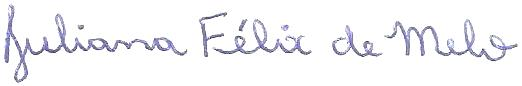 Juliana Félix de Melo